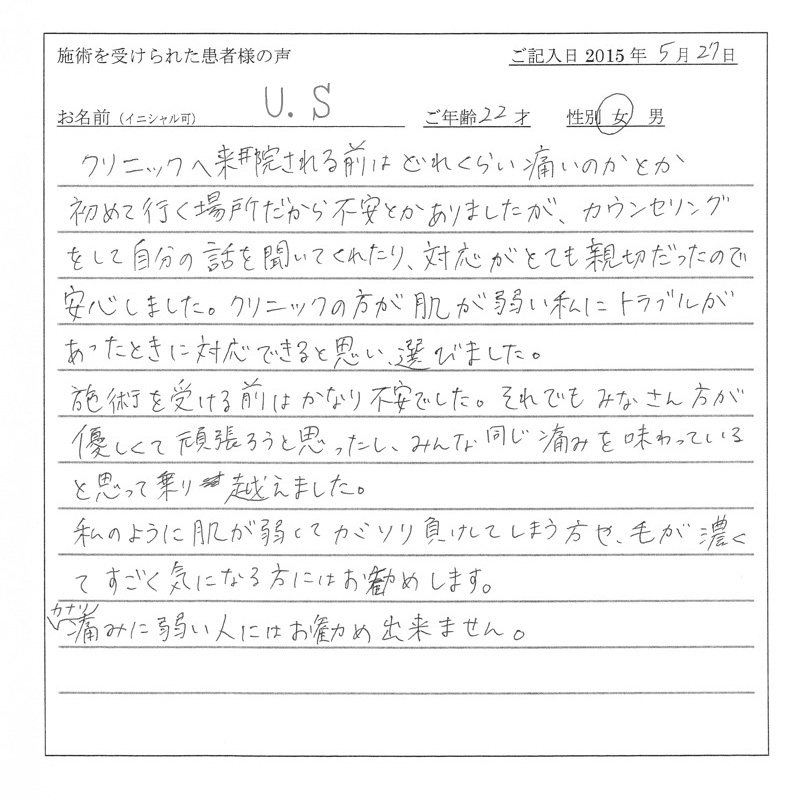 施術を受けられた患者様の声 ご記入日 2015 年 5 月 27 日
お名前（イニシャル可） U.S ご年齢 22 才 性別 女 男
クリニックへ来院される前はどれくらい痛いのかとか
初めて行く場所だから不安とかありましたが、カウンセリング
をして自分の話を聞いてくれたり、対応がとても親切だったので
安心しました。クリニックの方が肌が弱い私にトラブルが
あったときに対応できると思い、選びました。
施術を受ける前はかなり不安でした。それでもみなさん方が
優しくて頑張ろうと思ったし、みんな同じ痛みを味わっている
と思って乗り越えました。
私のように肌が弱くてカミソリ負けしてしまう方や、毛が濃く
てすごく気になる方にはお勧めします。
カナリ
痛みに弱い人にはお勧め出来ません。